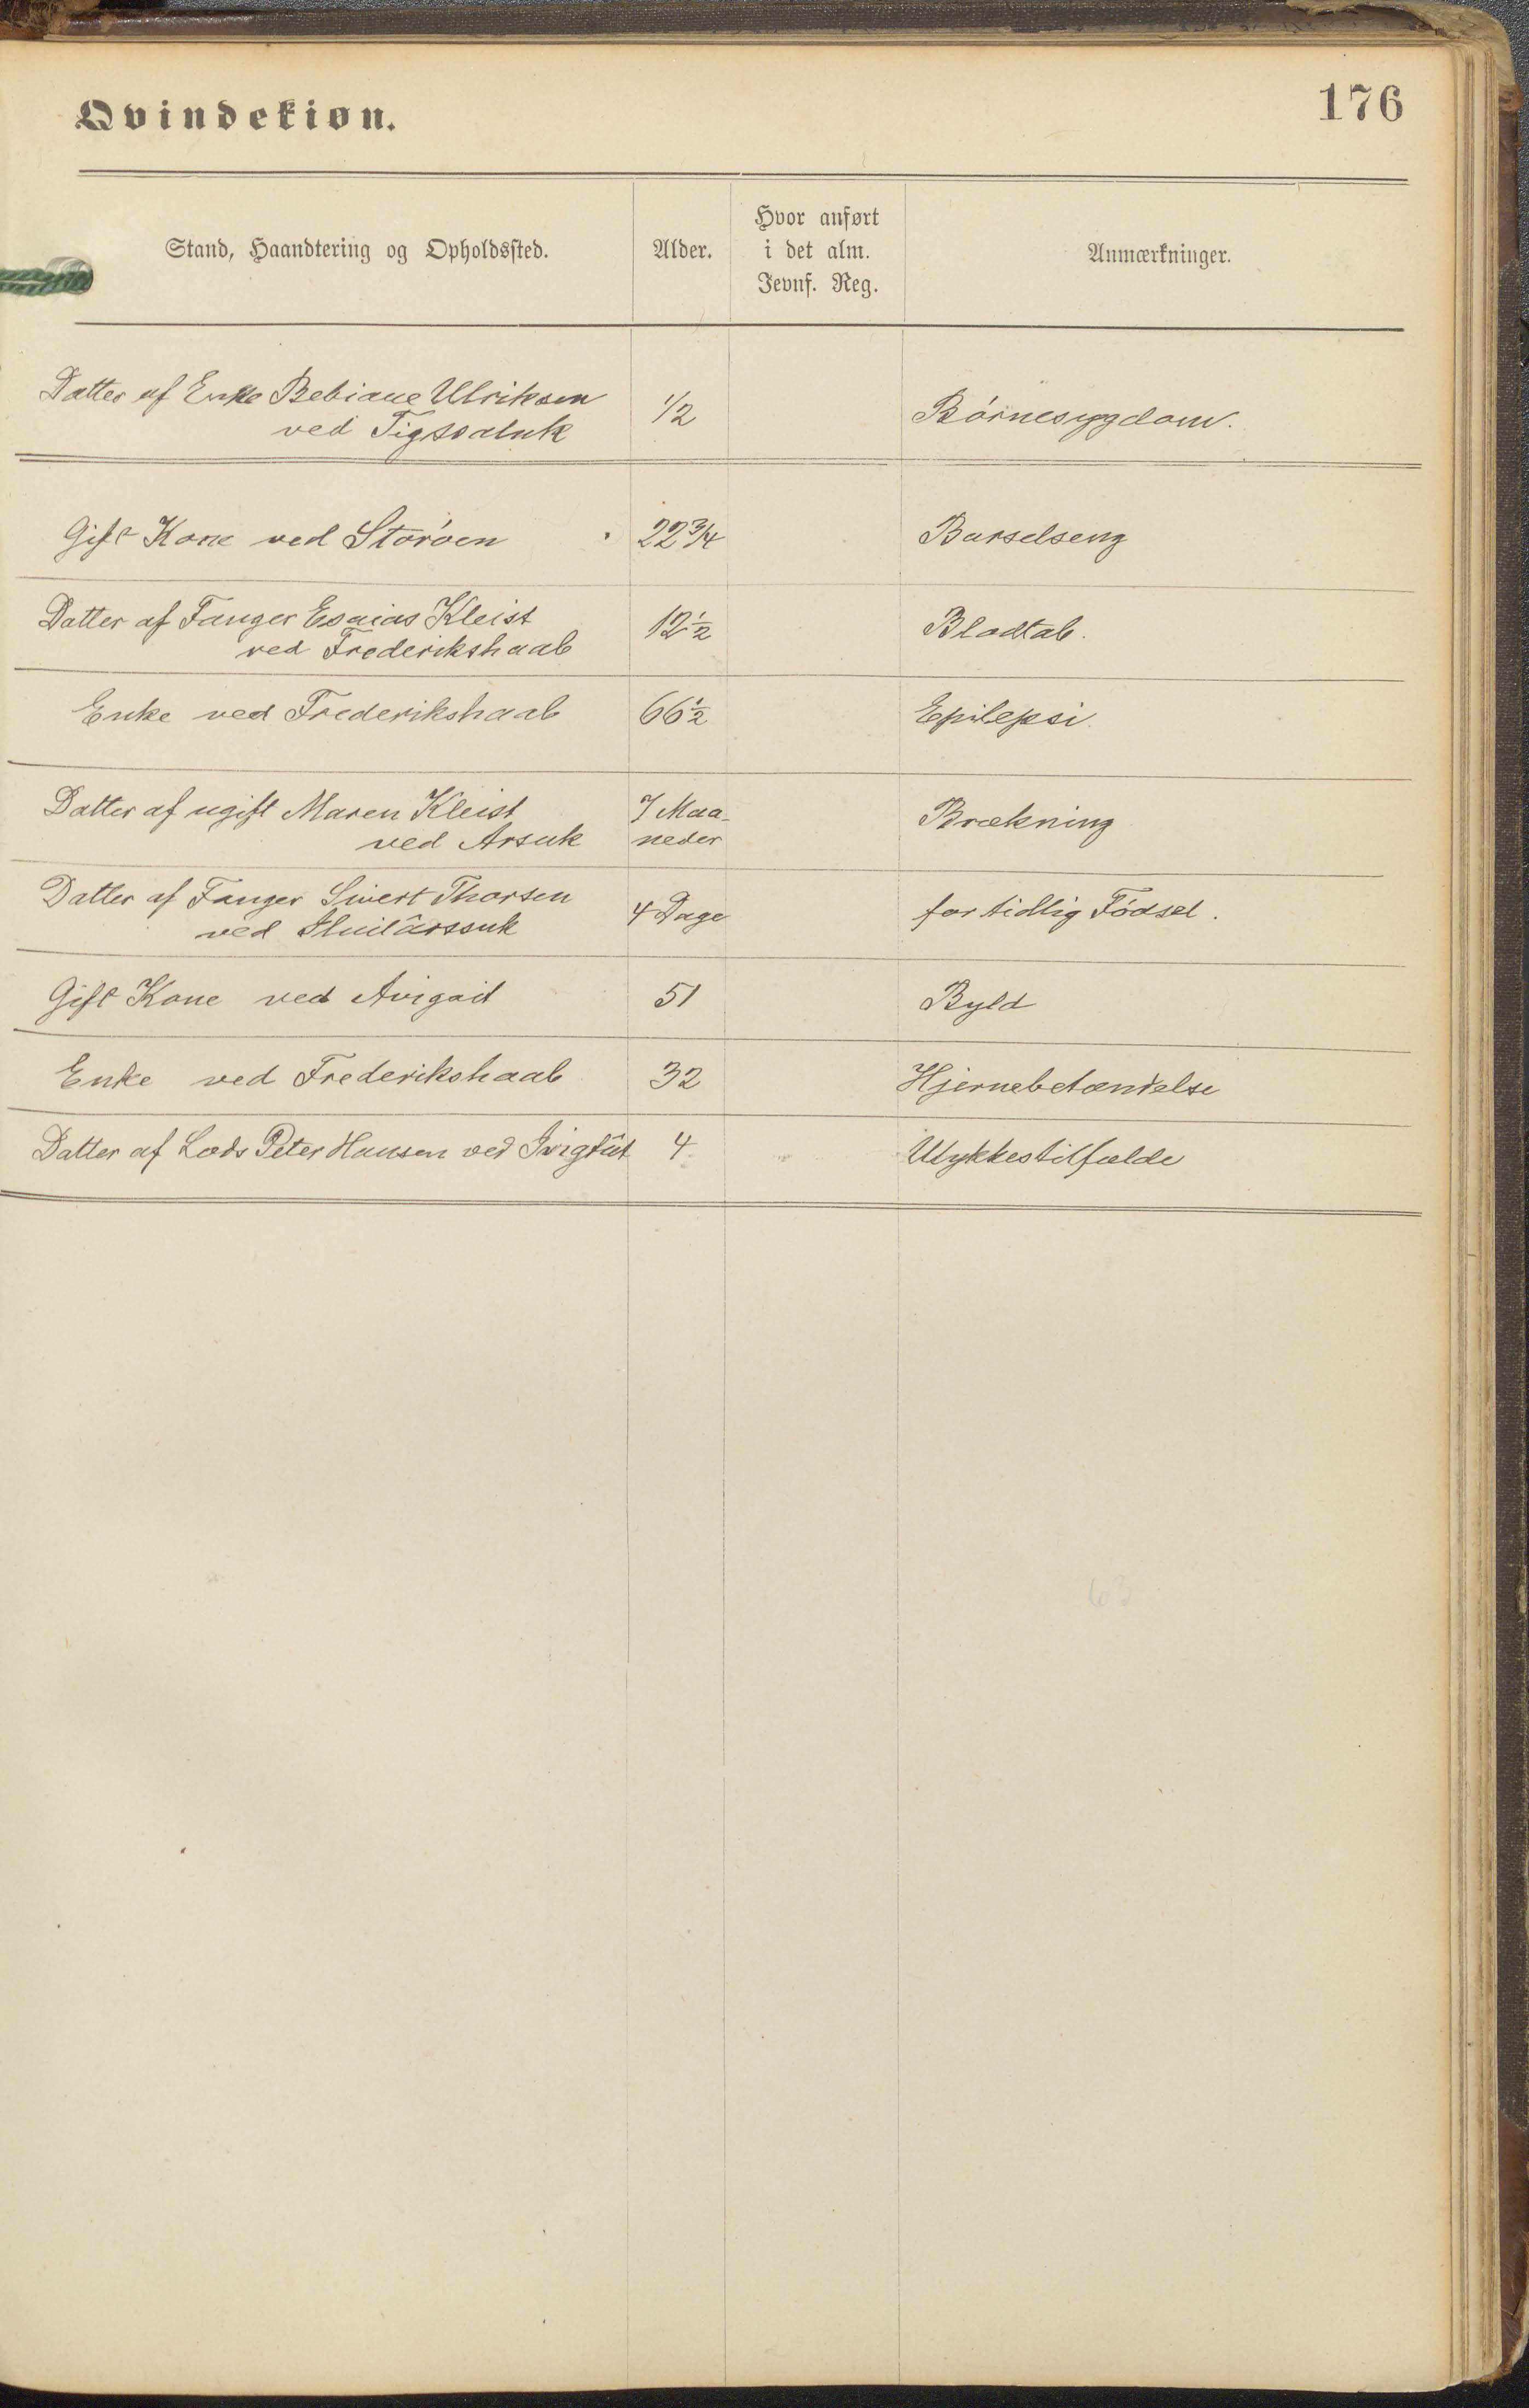 Qvindekiøn.
176
Stand, Haandtering og Opholdssted.
Alder.
Hvor anført
i det alm.
Jevnf. Reg.
Anmærkninger.
Datter af Enke Bebiane Ulriksen
ved Tigssaluk
1/2
Börnesygdom.
Gift Kone ved Storöen
22 3/4
Barselseng
Datter af Fanger Esaias Kleist
ved Frederikshaab
12 1/2
Blodtab.
Enke ved Frederikshaab
66 1/2
Epilepsi
Datter af ugift Maren Kleist
ved Arsuk
7 Maa-
neder
Brækning
Datter af Fanger Sivert Thorsen
ved
4 Dage
for tidlig Födsel.
Gift Kone ved Avigait
51
Byld
Enke ved Frederikshaab
32
Hjernebetændelse
Datter af Lods Peter Hansen ved Ivigtût
4
Ulykkestilfælde
63